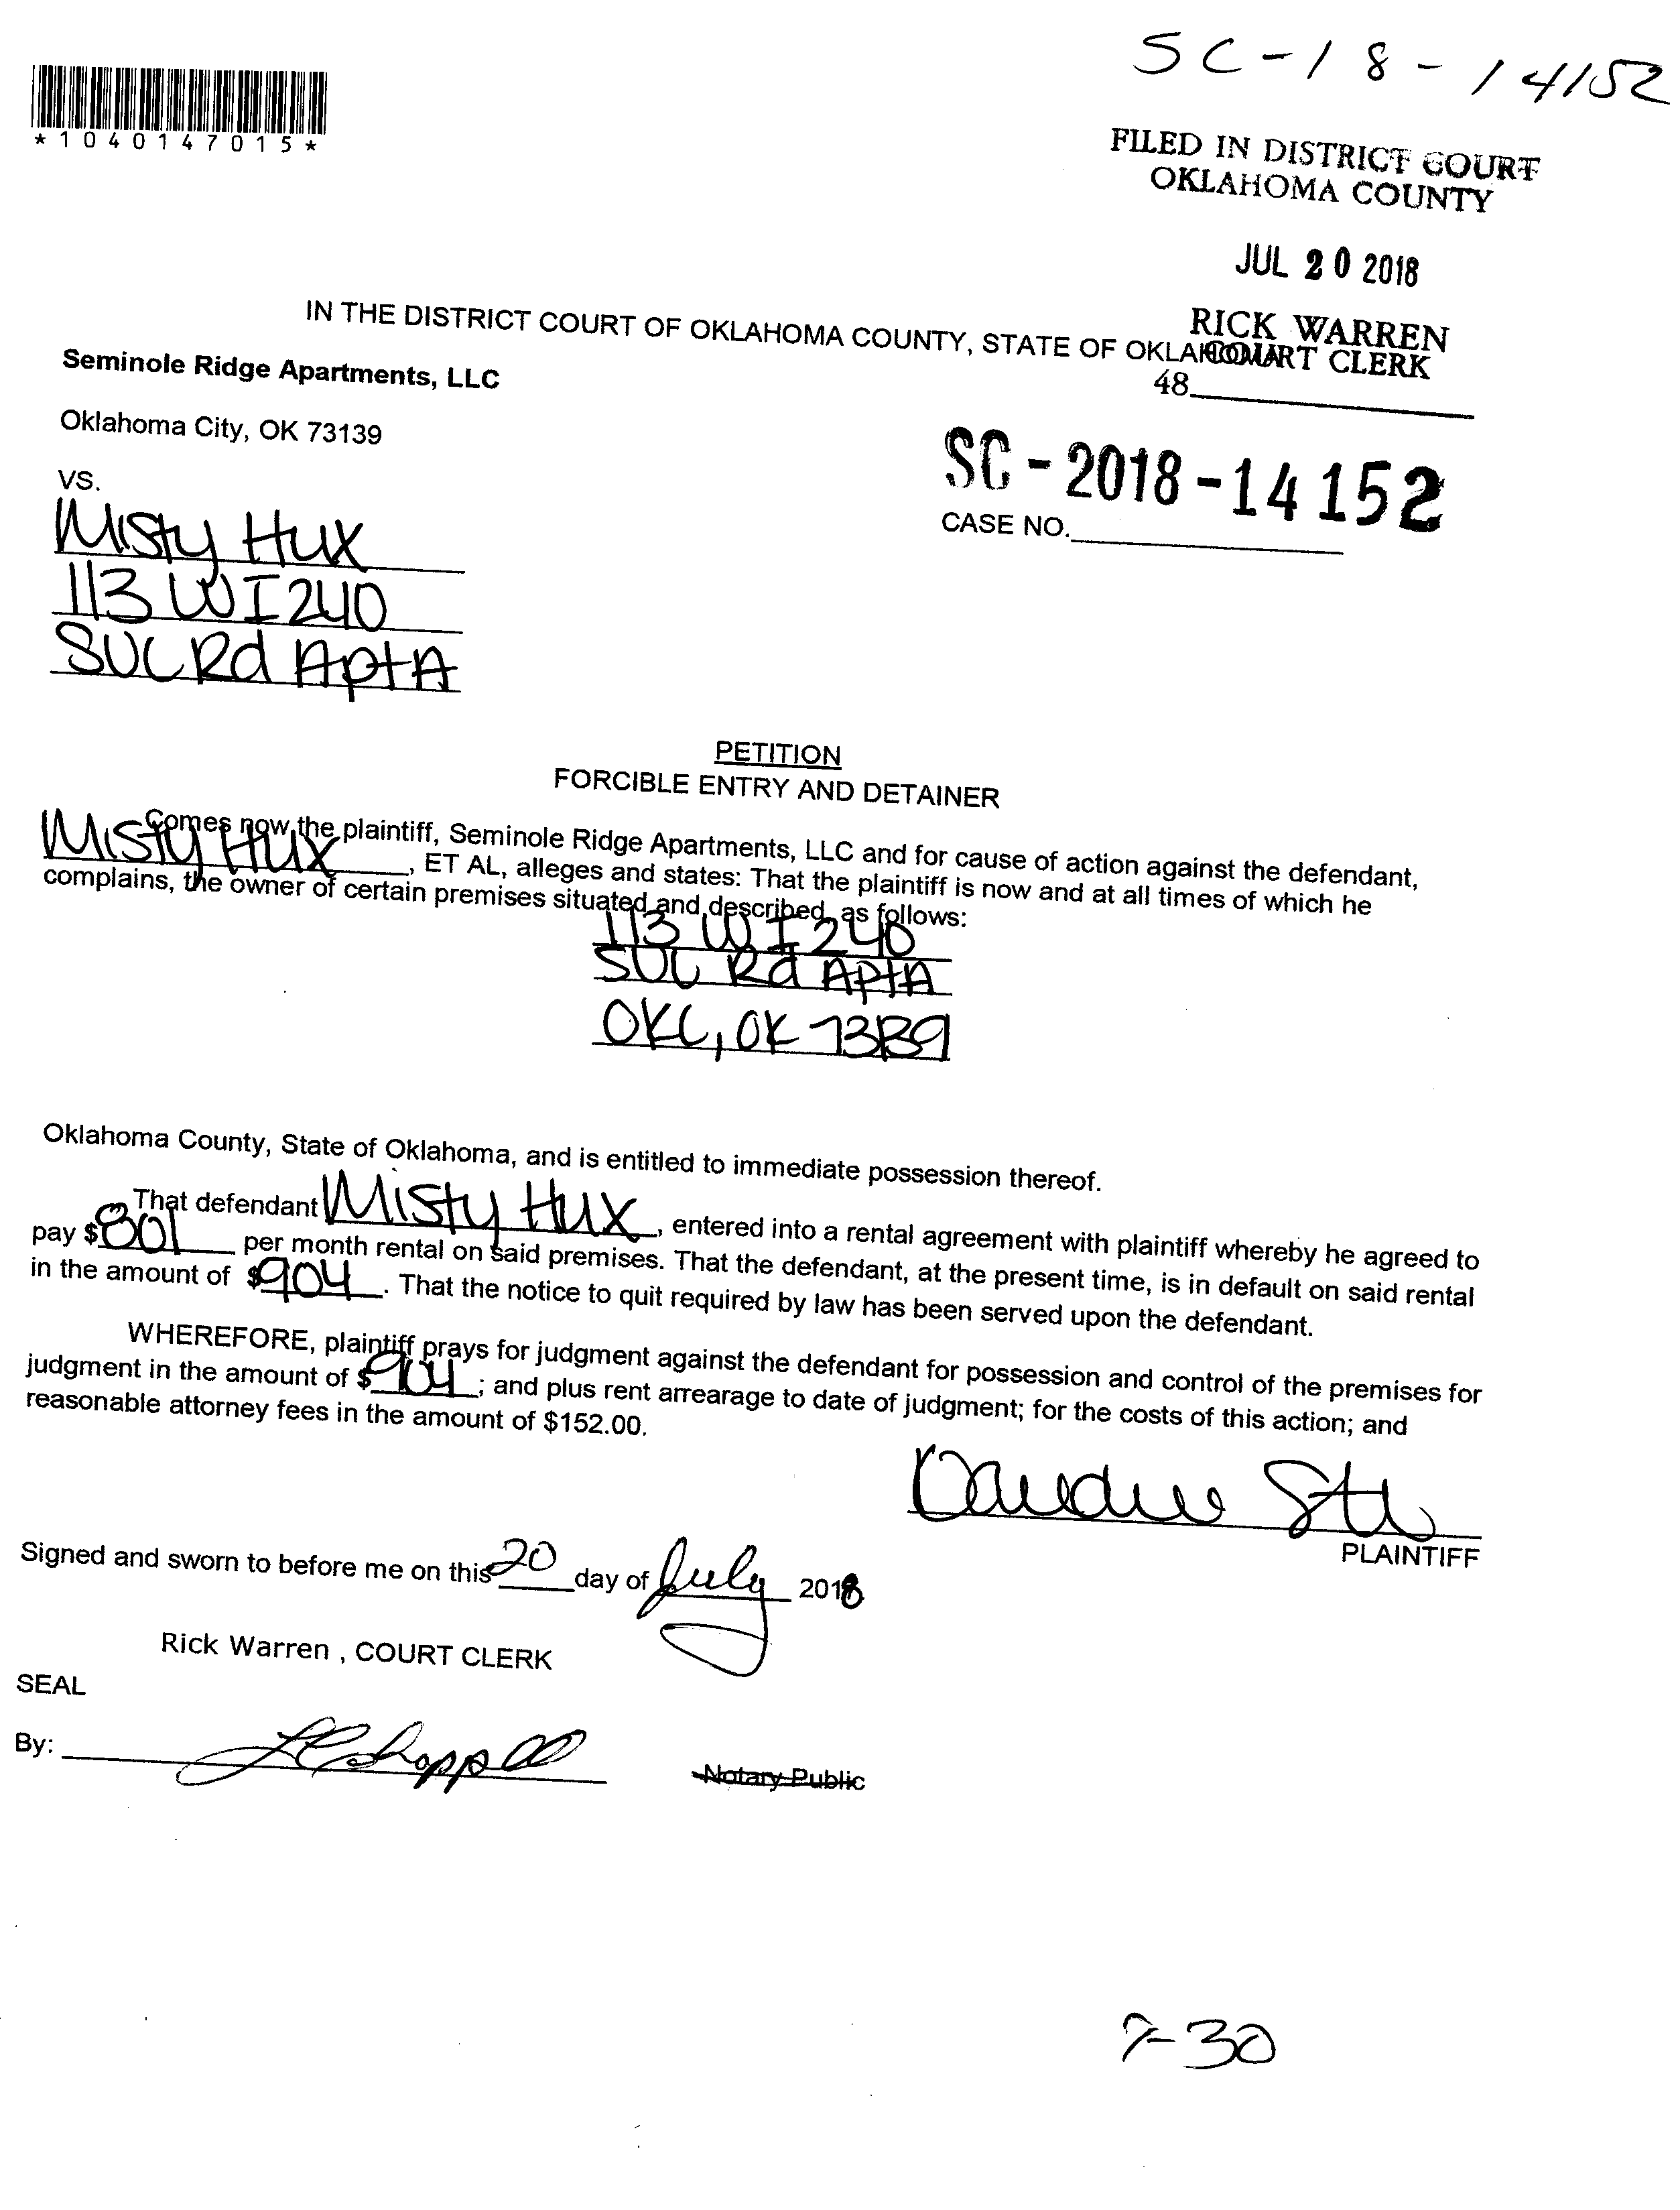 SC-18-14152
*1040147015*
FILED IN DISTRICT COURT
OKLAHOMA COUNTY
JUL 20 2018
RICK WARREN
COURT CLERK
48
IN THE DISTRICT COURT OF OKLAHOMA COUNTY, STATE OF OKLAHOMA
Seminole Ridge Apartments, LLC
Oklahoma City, OK 73139
SC-2018-14152
CASE NO.
VS.
Misty Hux
113 W I 240
SVC Rd Apt A
PETITION
FORCIBLE ENTRY AND DETAINER
Comes now the plaintiff, Seminole Ridge Apartments, LLC and for cause of action against the defendant,
Misty Hux, ET AL, alleges and states: That the plaintiff is now and at all times of which he
complains, the owner of certain premises situated and described, as follows:
113 W I 240
SVC Rd Apt A
OKC, OK 73139
Oklahoma County, State of Oklahoma, and is entitled to immediate possession thereof.
That defendant Misty Hux, entered into a rental agreement with plaintiff whereby he agreed to
pay $801 per month rental on said premises. That the defendant, at the present time, is in default on said rental
in the amount of $904. That the notice to quit required by law has been served upon the defendant.
WHEREFORE, plaintiff prays for judgment against the defendant for possession and control of the premises for
judgment in the amount of $904; and plus rent arrearage to date of judgment; for the costs of this action; and
reasonable attorney fees in the amount of $152.00.
PLAINTIFF
Signed and sworn to before me on this 20 day of July 2018
Rick Warren , COURT CLERK
SEAL
By:
Notary Public
7-30